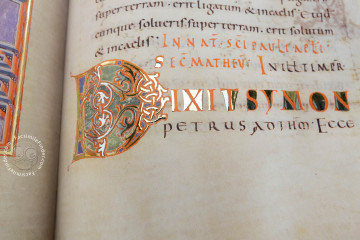 super terram. erit ligatum & incaelis & qđ
cumque solueris super terram. erit solutum
& incaelis. IN NAT SCI PAULI APLI
SEC MATHEU IN ILL TEMPR
DIXIT SYMON
PETRUS AD IHM ECCE